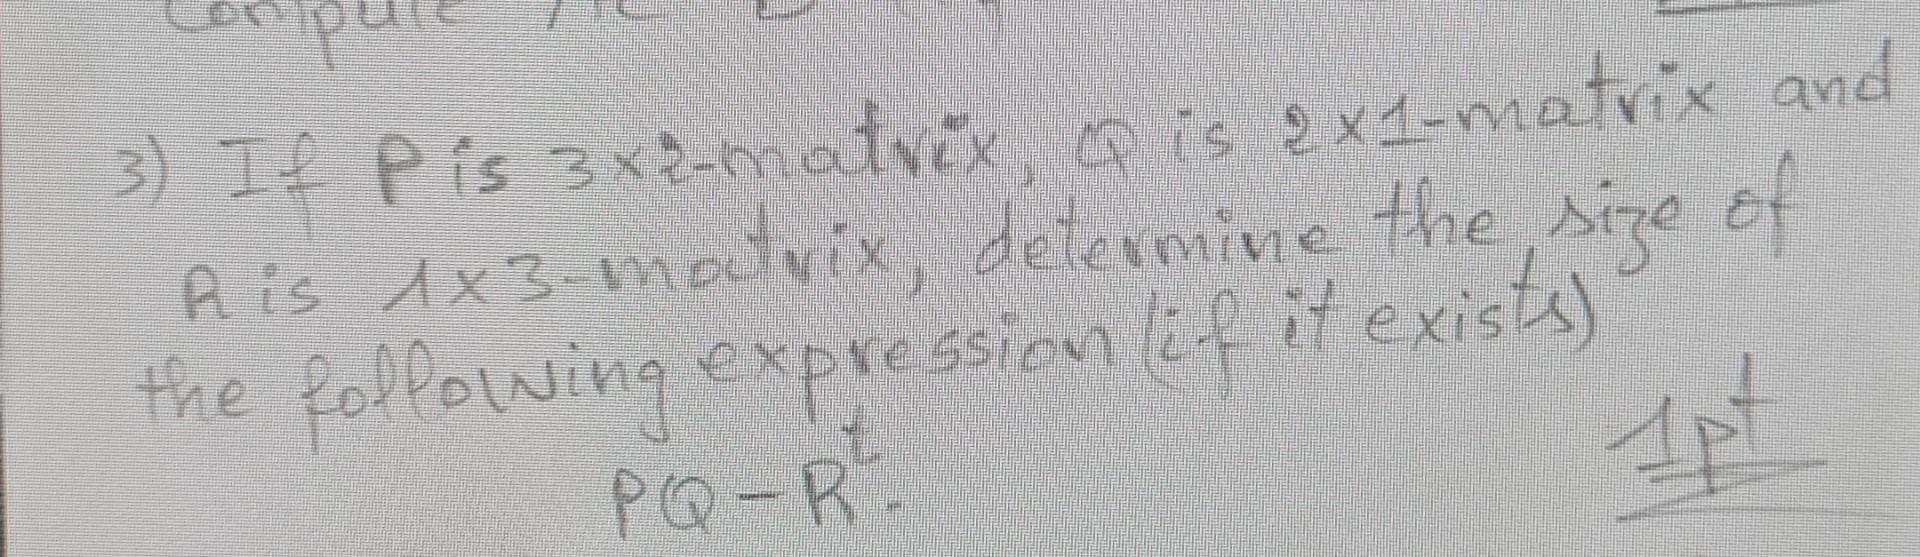 compute
3) If P is 3×2-matrix, Q is 2×1-matrix and
R is 1×3-matrix, determine the size of
the following expression (if it exists)
PQ-Rᵗ.
1pt